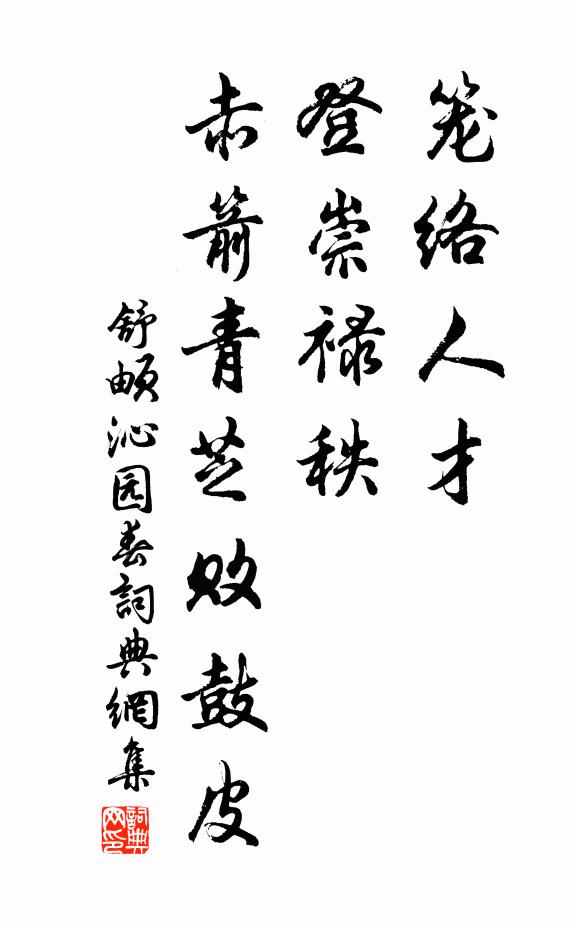 笼络人才
登崇禄秩
赤箭青芝败鼓皮
舒頔沁园春詞典網集
詞典网印